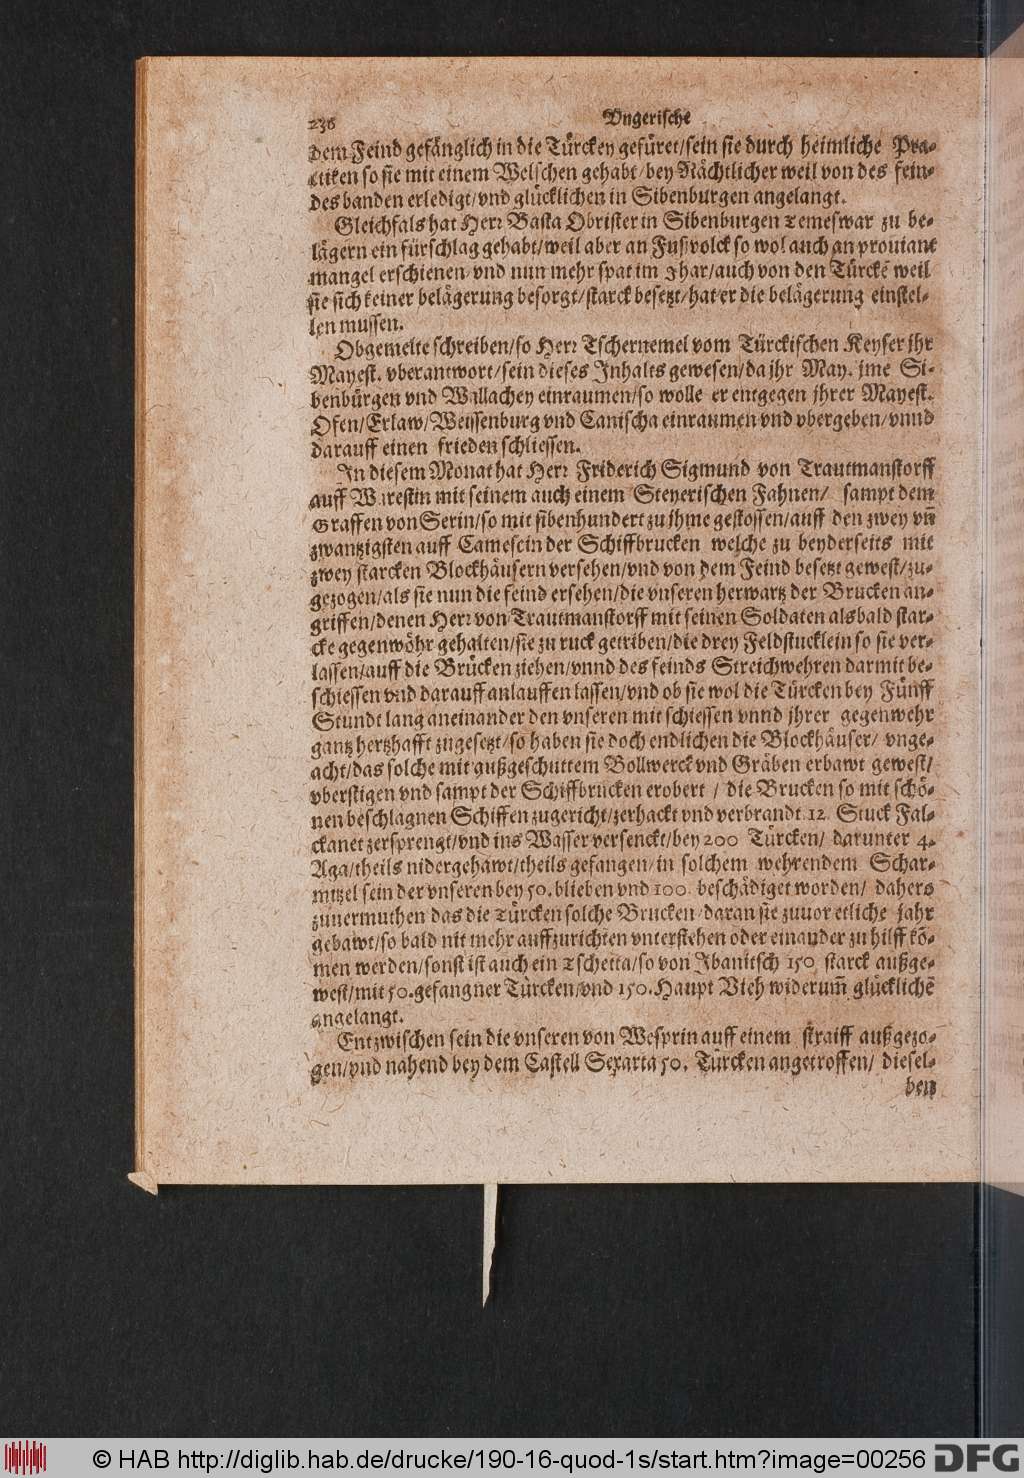 236 Vngerische
dem Feind gefänglich in die Türckey gefüret/sein sie durch heimliche Pra-
ctiken so sie mit einem Welschen gehabt/bey Nächtlicher weil von des fein-
des banden erledigt/vnd glücklichen in Sibenburgen angelangt.
Gleichfals hat Herr Basta Obrister in Sibenburgen Temeswar zu be-
lägern ein fürschlag gehabt/weil aber an Fußvolck so wol auch an prouiant
mangel erschienen/vnd nun mehr spat im Jhar/auch von den Türckẽ weil
sie sich keiner belägerung besorgt/starck besetzt/hat er die belägerung einstel-
len mussen.
Obgemelte schreiben/so Herr Tschernemel vom Türckischen Keyser jhr
Mayest. vberantwort/sein dieses Inhalts gewesen/da jhr May. jme Si-
benbürgen vnd Wallachey einraumen/so wolle er entgegen jhrer Mayest.
Ofen/Erlaw/Weissenburg vnd Canischa einraumen vnd vbergeben/vnnd
darauff einen frieden schliessen.
In diesem Monat hat Herr Friderich Sigmund von Trautmanstorff
auff Warestin mit seinem auch einem Steyerischen Fahnen/ sampt dem
Graffen von Serin/so mit sibenhundert zu jhme gestossen/auff den zwey vñ
zwantzigsten auff Camesein der Schiffbrucken welche zu beyderseits mit
zwey starcken Blockhäusern versehen/vnd von dem Feind besetzt gewest/zu-
gezogen/als sie nun die feind ersehen/die vnseren herwartz der Brucken an-
griffen/denen Herr von Trautmanstorff mit seinen Soldaten alsbald star-
cke gegenwöhr gehalten/sie zu ruck getriben/die drey Feldstucklein so sie ver-
lassen/auff die Brücken ziehen/vnnd des feinds Streichwehren darmit be-
schiessen vnd darauff anlauffen lassen/vnd ob sie wol die Türcken bey Fünff
Stundt lang aneinander den vnseren mit schiessen vnnd jhrer gegenwehr
gantz hertzhafft zugesetzt/so haben sie doch endlichen die Blockhäuser/ vnge-
acht/das solche mit außgeschuttem Bollwerck vnd Gräben erbawt gewest/
vberstigen vnd sampt der Schiffbrucken erobert / die Brucken so mit schö-
nen beschlagnen Schiffen zugericht/zerhackt vnd verbrandt 12. Stuck Fal-
ckanet zersprengt/vnd ins Wasser versenckt/bey 200 Türcken/ darunter 4.
Aga/theils nidergehawt/theils gefangen/in solchem wehrendem Schar-
mützel sein der vnseren bey 50. blieben vnd 100. beschädiget worden/ dahero
zuuermuthen das die Türcken solche Brucken/daran sie zuuor etliche jahr
gebawt/so bald nit mehr auffzurichten vnterstehen oder einander zu hilff kõ-
men werden/sonst ist auch ein Tschetta/so von Ibanitsch 150 starck außge-
west/mit 50. gefangner Türcken/vnd 150. Haupt Vieh widerum̃ glücklichẽ
angelangt.
Entzwischen sein die vnseren von Wesprin auff einem straiff außgezo-
gen/vnd nahend bey dem Castell Sexarta 50. Türcken angetroffen/ diesel-
ben
© HAB http://diglib.hab.de/drucke/190-16-quod-1s/start.htm?image=00256
DFG